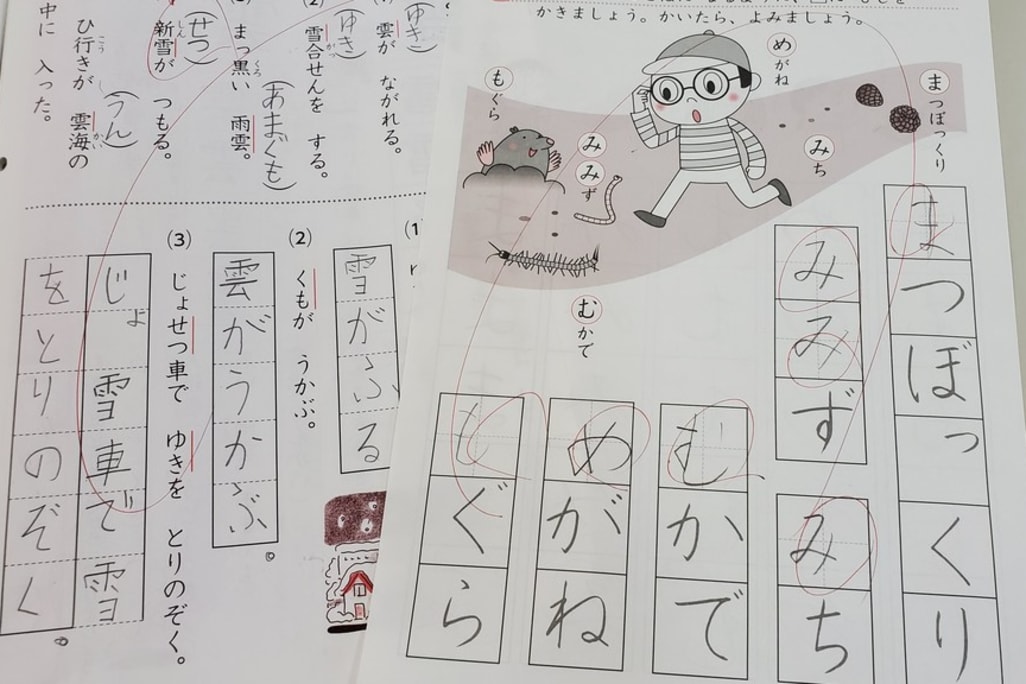 かきましょう。かいたら、よみましょう。
まつぼっくり
めがね
みち
もぐら
みみず
むかで
まつぼっくり
みみず
みち
むかで
めがね
もぐら
(ゆき)
雲が ながれる。
(ゆき)
(2) 雪合せんを する。
(あまぐも)
まっ黒い 雨雲。
くろ
(せつ)
新雪が つもる。
しん
(うん)
ひ行きが 雲海の
こう かい
中に 入った。
(1)
雪がふる
(2) くもが うかぶ。
雲がうかぶ。
(3) じょせつ車で ゆきを とりのぞく。
じょ雪車で雪
をとりのぞく。